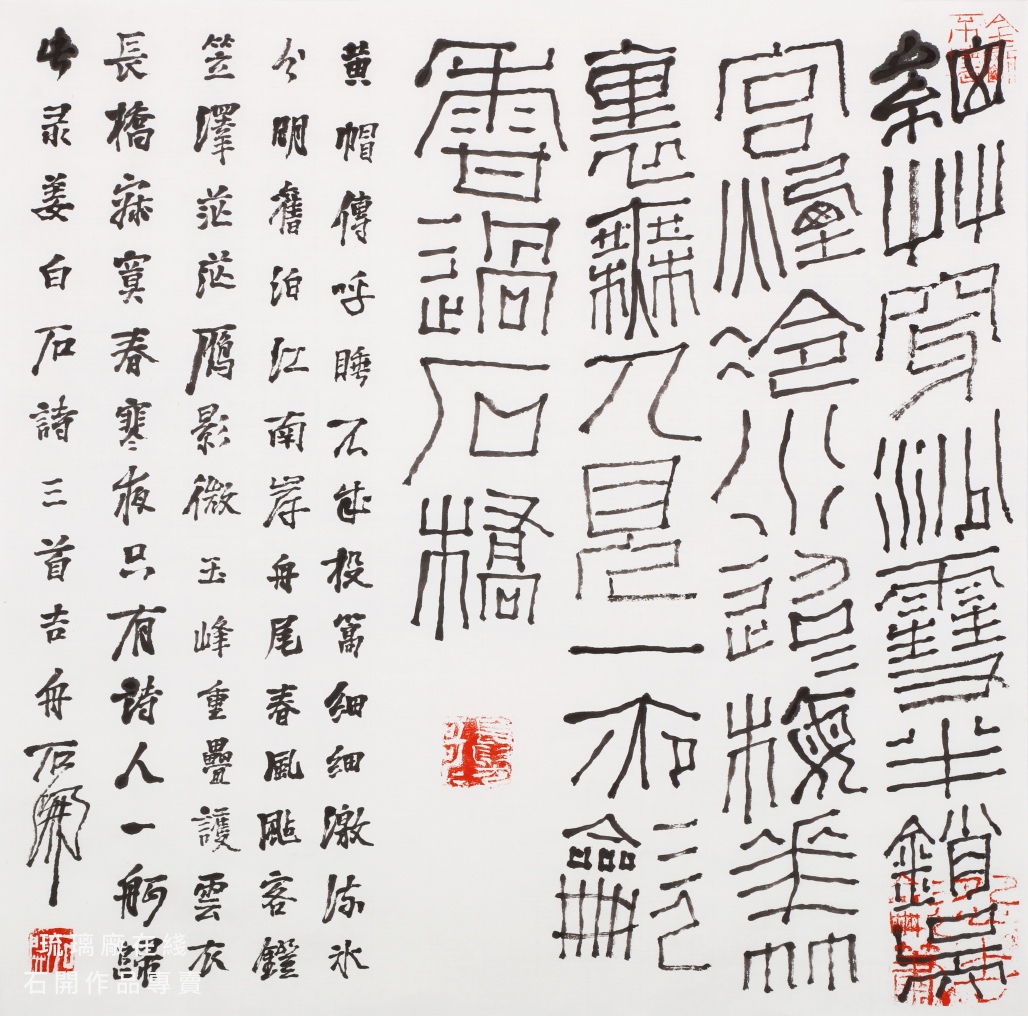 細艸穿沙雪半銷吳
宮煙冷水迢〻梅花竹
裏無人見一夜龡
香過石橋
黃帽傳呼睡不成投篙細細激流冰
分明舊泊江南岸舟尾春風颭客鐙
笠澤茫茫雁影微玉峰重疊護雲衣
長橋寂寞春寒夜只有詩人一舸歸
录姜白石詩三首吉舟石開
琉璃廠在綫
石開作品專賣